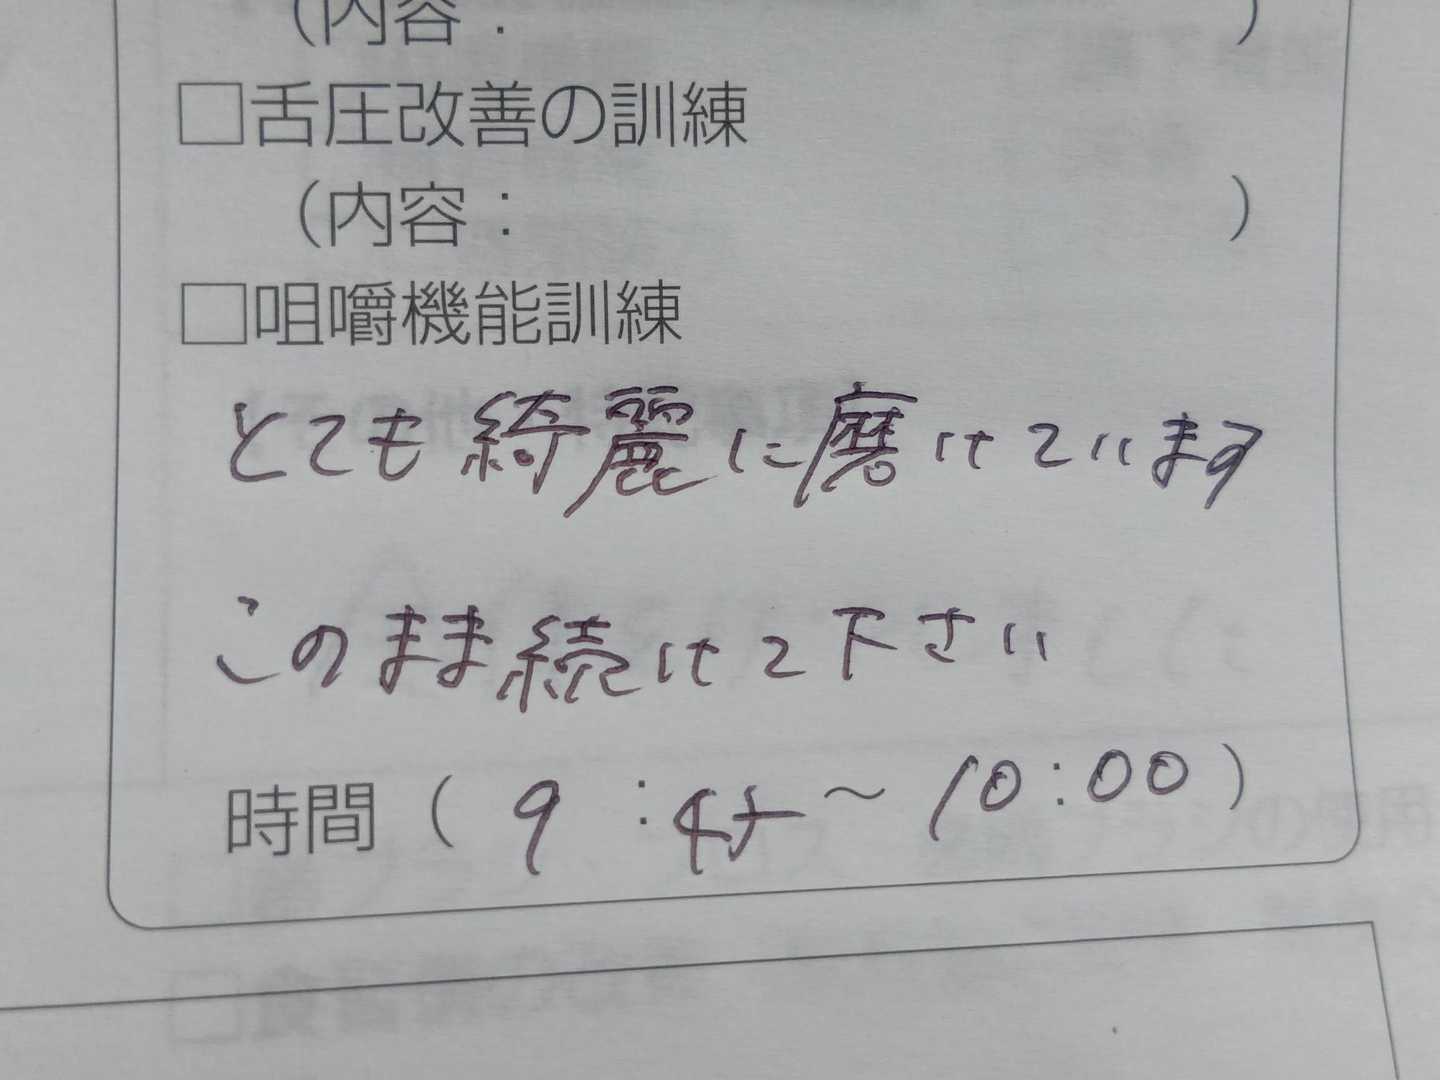 （内容：　）
□舌圧改善の訓練
（内容：　）
□咀嚼機能訓練
とても綺麗に磨けています
このまま続けて下さい
時間（ 9：45～10：00）